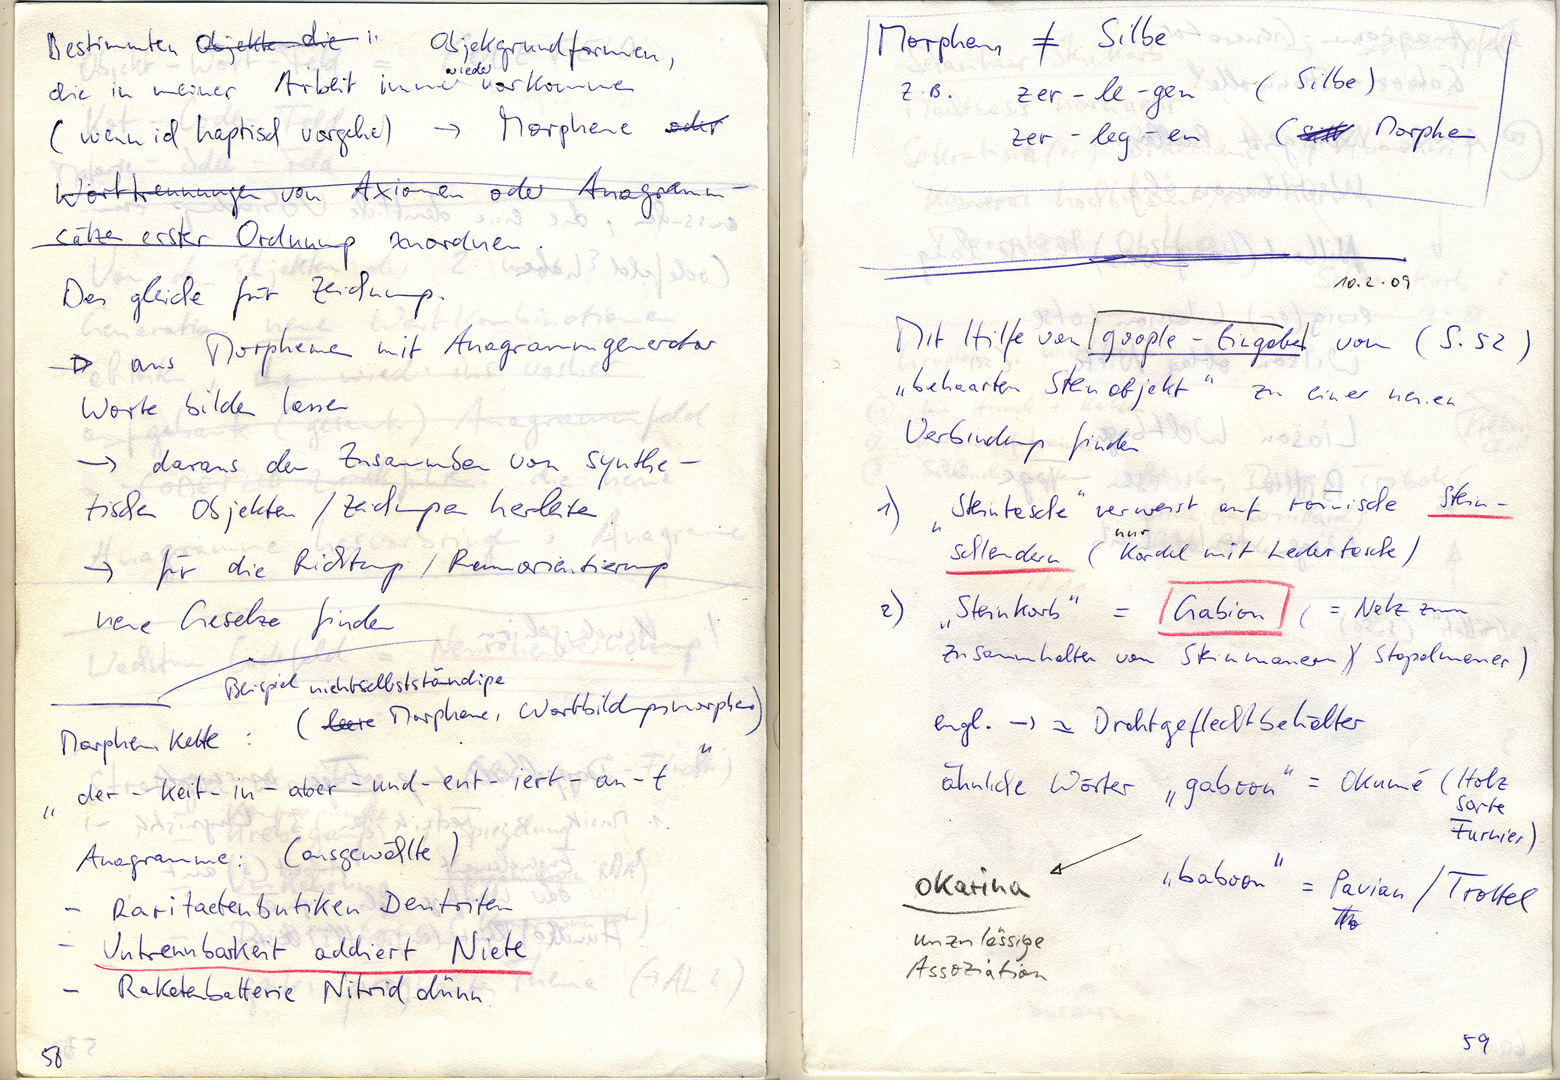 Bestimmten Objekte die " Objekgrundformen,
die in meiner Arbeit immer wieder vorkommen
(wenn ich haptisch vorgehe) → Morpheme oder
Worttrennungen von Axiomen oder Anagramm-
sätze erster Ordnung zuordnen.
Das gleiche für Zeichnung.
→ aus Morpheme mit Anagrammgenerator
Worte bilden lassen
→ daraus den Zusammben von synthe-
tischen Objekten / Zeichnungen herleiten
→ für die Richtung / Raumorientierung
neue Gesetze finden
Beispiel nichtselbstständige
(leere Morpheme, Wortbildungsmorpheme)
Morphem Kette :
"der - keit - in - aber - und - ent - iert - an - t"
Anagramme: (ausgewählte)
- Raritaetenbutiken Dentriten
- Untrennbarkeit addiert Niete
- Raketenbatterie Nitrid dünn
58
Morphem ≠ Silbe
z.B. zer - le - gen (Silbe)
zer - leg - en (Silb Morphem
10.2.09
Mit Hilfe von google - Eingabe vom (S. 52)
„behaarten Steinobjekt" zu einer neuen
Verbindung finden
1) „Steintasche" verweist auf römische Stein-
schleudern (nur Kordel mit Ledertasche)
2) „Steinkorb" = Gabion (= Netz zum
zusammhalten von Steinmauern)( Stapelmauer)
engl. → ≃ Drahtgeflechtbehälter
ähnliche Wörter „gaboon" = Okumé (Holz
sorte
Furnier)
„baboon" = Pavian / Trottel
Okarina
unzulässige
Assoziation
59